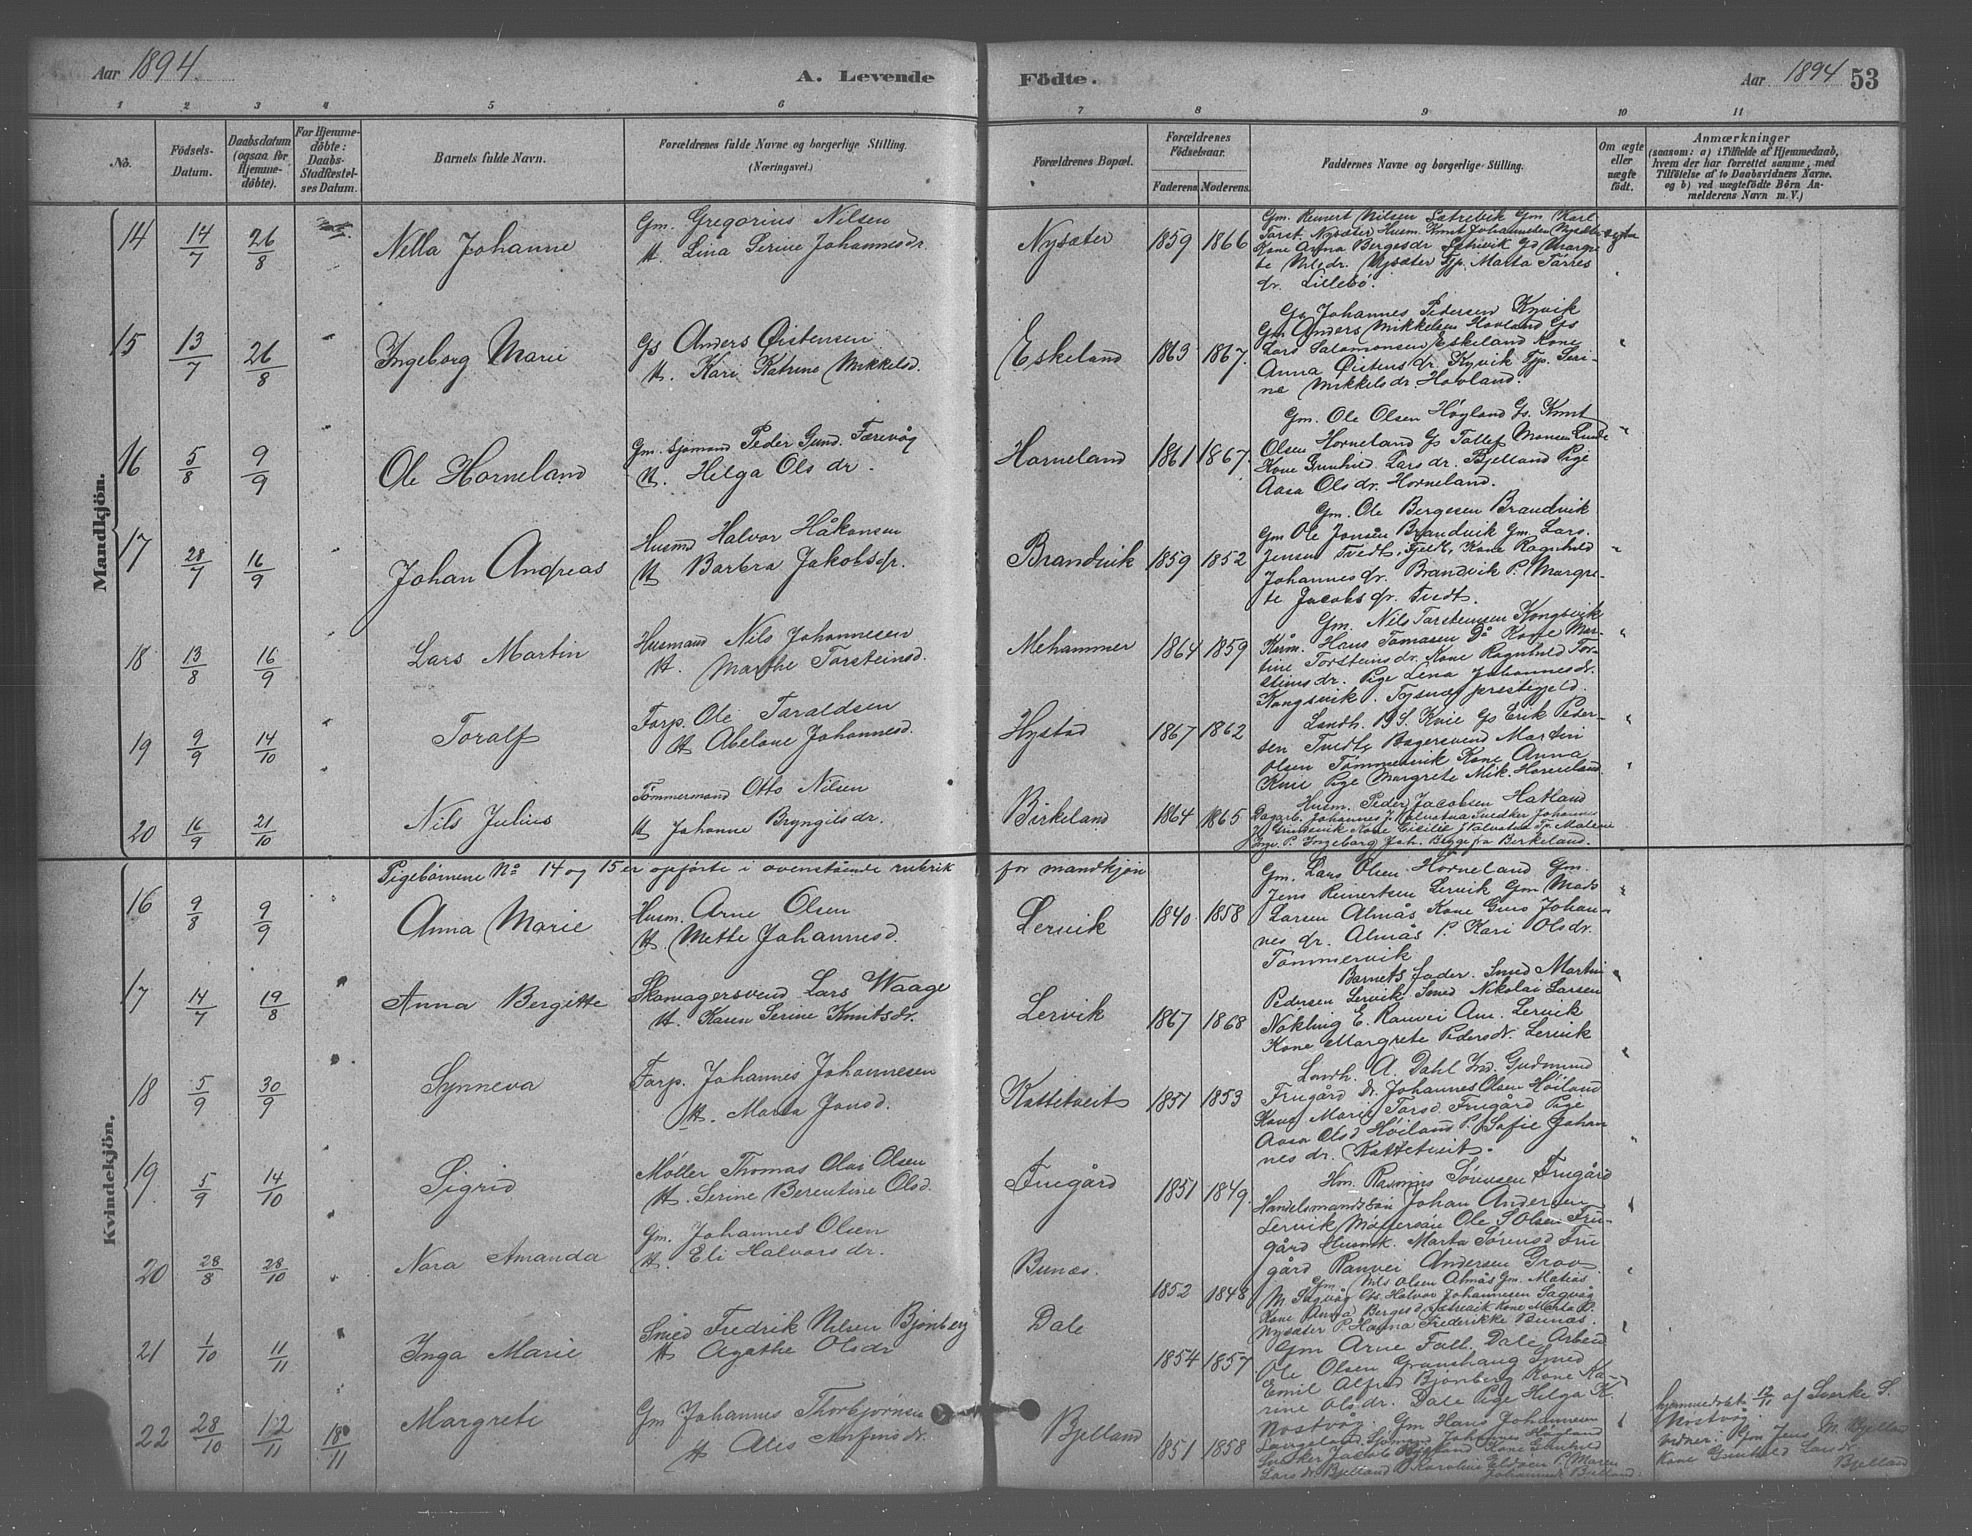 Aar 1894. A. Levende Födte. Aar 1894 53
1 2 3 4 5 6 7 8 9 10 11
No. Födsels-Datum. Daabsdatum (ogsaa for Hjemme-döbte). For Hjemme-döbte: Daabs-Stadfæstel-ses Datum. Barnets fulde Navn. Forældrenes fulde Navne og borgerlige Stilling. (Næringsvei.) Forældrenes Bopæl. Forældrenes Födselsaar. Faderens. Moderens. Faddernes Navne og borgerlige Stilling. Om ægte eller uægte födt. Anmærkninger (saasom: a) i Tilfælde af Hjemmedaab, hvem der har forrettet samme, med Tilföielse af to Daabsvidners Navne. og b) ved uægtefödte Börn An-melderens Navn m. V.)
Mandkjön.
14 14/7 26/8 Nella Johanne Gm. Gregorius Nilsen
H. Lina Serine Johannesdr. Nysæter 1859 1866 Gm. Reinert Nilsen Sætrevik Gm. Karl
Torst. Nysæter Husm. Knut Johannesen Nysæter ægte
Kone Anna Bergesdr. Sætrevik Gd Margre-
te Nilsdr. Nysæter Tjp. Marta Torres
dr. Lillebö.
15 13/7 26/8 Ingeborg Marie Gs Anders Öistensen
H. Kari Katrine Mikkelsd. Eskeland 1863 1867. Gs Johannes Pedersen Kyvik
Gm Anders Mikkelsen Hovland Gs
Lars Salamonsen Eskeland Kone
Anna Öistensdr. Kyvik Tjp. Seri-
ne Mikkelsdr. Hovland.
16 5/8 9/9 Ole Horneland Gm. Sjömand Peder Gund. Færevåg
H. Helga Olsdr. Horneland 1861 1867. Gm. Ole Olsen Høgland Gs. Knut
Olsen Horneland Gs Tollef Monsen Lunde
Kone Gunhild Larsdr. Bjelland Pige
Aasa Olsdr. Horneland.
17 28/7 16/9 Johan Andreas Husmd Halvor Håkonsen
H. Barbra Jakobsdr. Brandvik 1859 1852 Gm. Ole Bergesen Brandvik
Gm Ole Jonsen Brandvik Gm. Lars
Jensen Tvedt, Fjeldb. Kone Ragnhild
Johannesdr. Brandvik P. Margre-
te Jacobsdr. Tvedt.
18 13/8 16/9 Lars Martin Husmand Nils Johannesen
H. Marthe Torsteinsd. Mehammer 1864 1859 Gm. Nils Torsteinsen Kongsvik
Kårm. Hans Tomasen Do Kone Mar-
tine Torsteinsdr. Kone Ragnhild Tor-
steinsdr. Pige Lena Johannesdr.
Kongsvik. Tysnæs prestegjeld.
19 9/9 14/10 Toralf Forp. Ole Toraldsen
H Abelone Johannesd. Hystad 1867 1862 Landh. B S. Kvie Gs Erik Peder-
sen Tvedte Bagersvend Martin
Olsen Tömmervik Kone Anna
Kvie Pige Margrete Mik. Horneland.
20 16/9 21/10 Nils Julius Tömmermand Otto Nilsen
H Johanne Bryngilsdr. Birkeland 1864 1865 Husm. Peder Jacobsen Hatland
Dagarb. Johannes J. Valvatna Snedker Johannes
Grunnevik Kone Cicilie J Valvatna Tp. Malene
Inge. P. Ingeborg Joh. Begge fra Birkeland.
Pigebörnene No 14 og 15 er opförte i ovenstående rubrik for mandkjön
Kvindekjön.
16 9/8 9/9 Anna Marie Husm. Arne Olsen
H Mette Johannesd. Lervik 1840. 1858 Gm. Lars Olsen Horneland Gm.
Jens Reinertsen Lervik Gm Mads
Larsen Almås Kone Guro Johan-
nesdr. Almås P. Kari Olsdr.
Tömmervik
17 14/7 19/8 Anna Bergitte Skomagersvend Lars Waage
H. Karen Serine Knutsdr. Lervik 1867 1868 Barnets fader. Smed Martin
Pedersen Lervik Smed Nikolai Larsen
Nökling E. Ranvei Am. Lervik
Kone Margrete Pedersdr. Lervik
18 5/9 30/9 Synneva Forp. Johannes Johannesen
H. Marta Jonsd. Kattetveit 1851 1853 Landh. A. Dahl Ind. Gudmund
Frugård Dr. Johannes Olsen Höiland
Kone Marie Torsd. Frugård Pige
Aasa Olsd Höiland P. Sofie Johan
nesdr. Kattetveit.
19 5/9 14/10 Sigrid Møller Thomas Olai Olsen
H. Serine Berentine Olsd. Frugård 1851 1849. Hm. Rasmus Sörensen Frugård
Handelsmandssön Johan Andersen
Lervik Møllersön Ole S Olsen Fru-
gård Husmk. Marta Sörensd Fru
gård Ranvei Andersen Grov.
20 28/8 28/10 Nora Amanda Gm. Johannes Olsen
H. Eli Halvorsdr. Bunæs. 1852 1848 Gm. Nils Olsen Almås Gm. Matias
M Sagvåg Gs. Halvor Johannesen Sagvåg
Kone Anna Bergesd. Sætrevik Kone Marta P.
Nysæter P. Hanna Frederikke Bunæs.
21 1/10 11/11 Inga Marie Smed Fredrik Nilsen Bjönberg
H Agathe Olsdr Dale 1854 1857 Gm Arne Toll. Dale Arbeid
Ole Olsen Granshaug Smed
Emil Alfred Bjönberg Kone Ka-
rine Olsdr. Dale Pige Helga K.
Nostvåg.
22 28/10 12/11 18/11 Margrete Gm Johannes Thorbjörnsen
H Alis Arfinsdr. Bjelland 1851 1858 Gm Hans Johannesen
Laurgeland Sjömand Johannes Høgland
Snedker Jacob Høgland Kone Gunhild
Larsdr Bjelland P Karoline Eldöen P. Maren
Johannesd. Bjelland
hjemmedöbt 12/11 af Sverke S.
Nostvåg.
vidner: Gm Jens M. Bjelland
Kone Gunhild Larsdr.
Bjelland